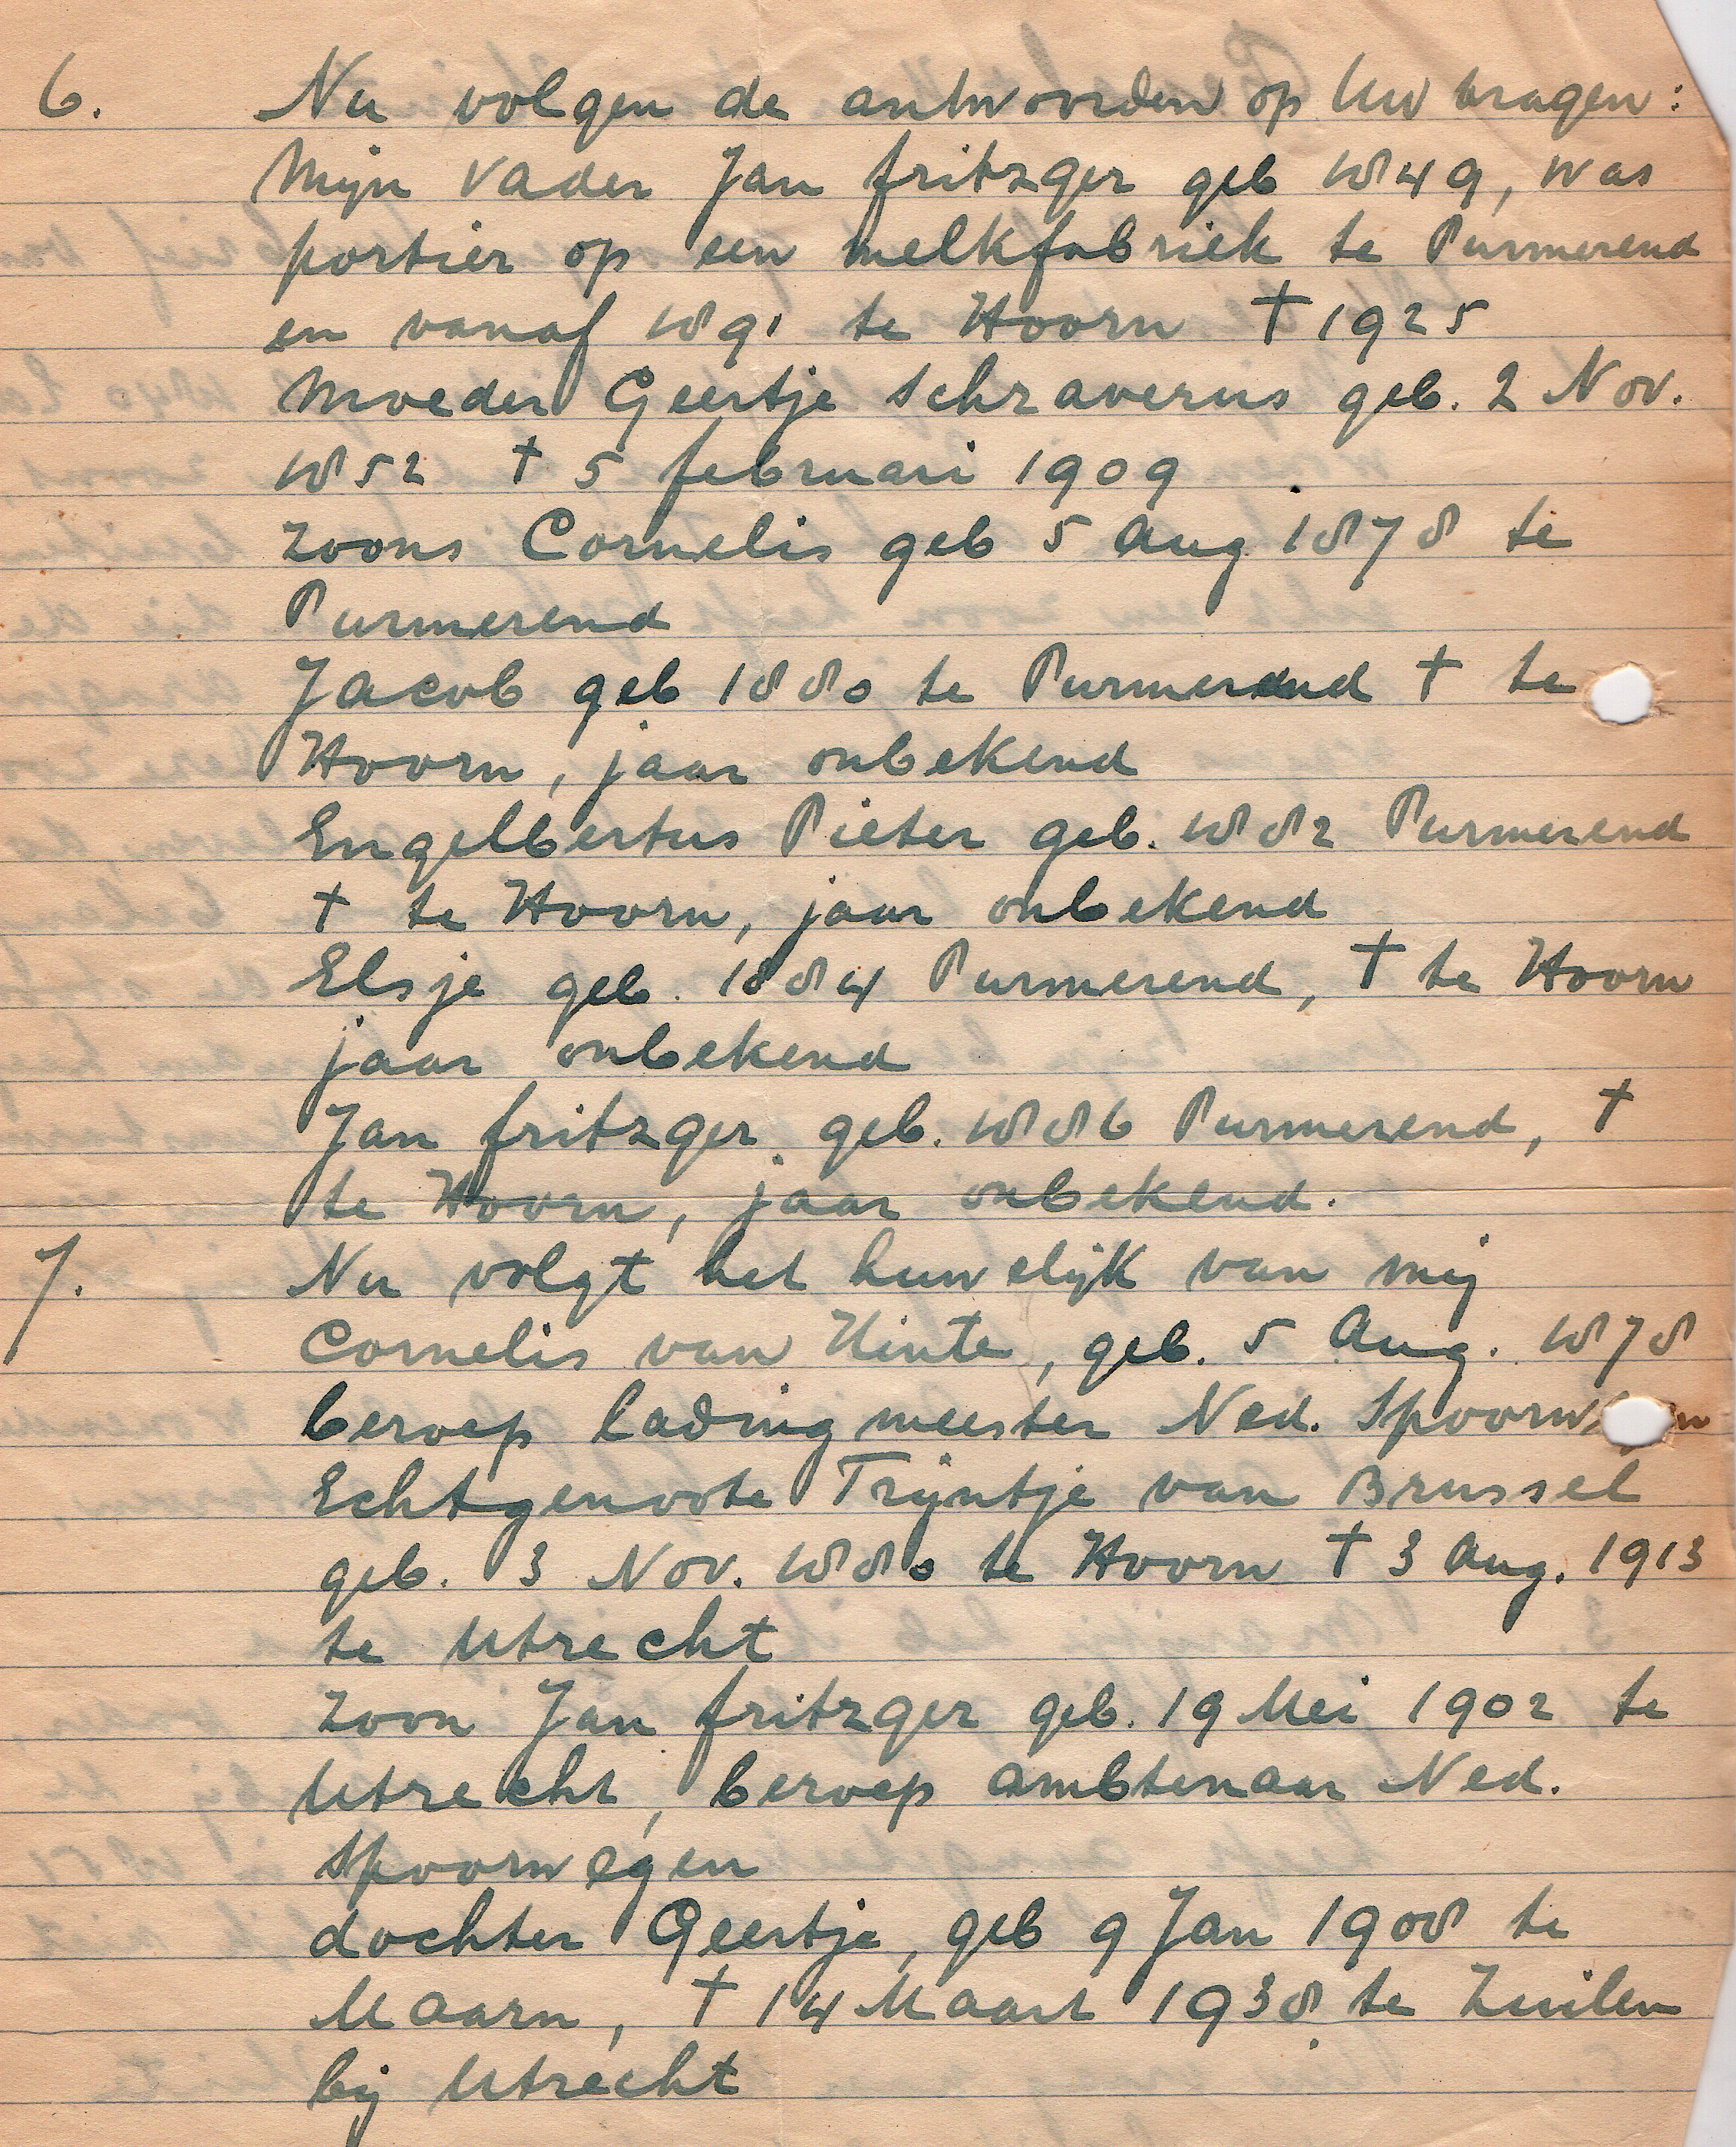 6. Nu volgen de antwoorden op Uw vragen:
Mijn Vader Jan fritzger geb 1849, was
portier op een melkfabriek te Purmerend
en vanaf 1891 te Hoorn † 1925
Moeder Geertje Schraverus geb. 2 Nov.
1852 † 5 februari 1909
Zoons Cornelis geb 5 Aug 1878 te
Purmerend
Jacob geb 1880 te Purmerend † te
Hoorn, jaar onbekend
Engelbertus Pieter geb. 1882 Purmerend
† te Hoorn, jaar onbekend
Elsje geb. 1884 Purmerend, † te Hoorn
jaar onbekend
Jan fritzger geb. 1886 Purmerend, †
te Hoorn, jaar onbekend.
7. Nu volgt het huwelijk van mij
Cornelis van Hinte, geb. 5 Aug. 1878
beroep ladingmeester Ned.
Echtgenoote Trijntje van Brussel
geb. 3 Nov. 1880 te Hoorn † 3 Aug. 1913
te Utrecht
Zoon Jan fritzger geb. 19 Mei 1902 te
Utrecht, beroep ambtenaar Ned.
Spoorwegen
dochter Geertje, geb 9 Jan 1908 te
Maarn, † 14 Maart 1938 te Zuilen
bij Utrecht